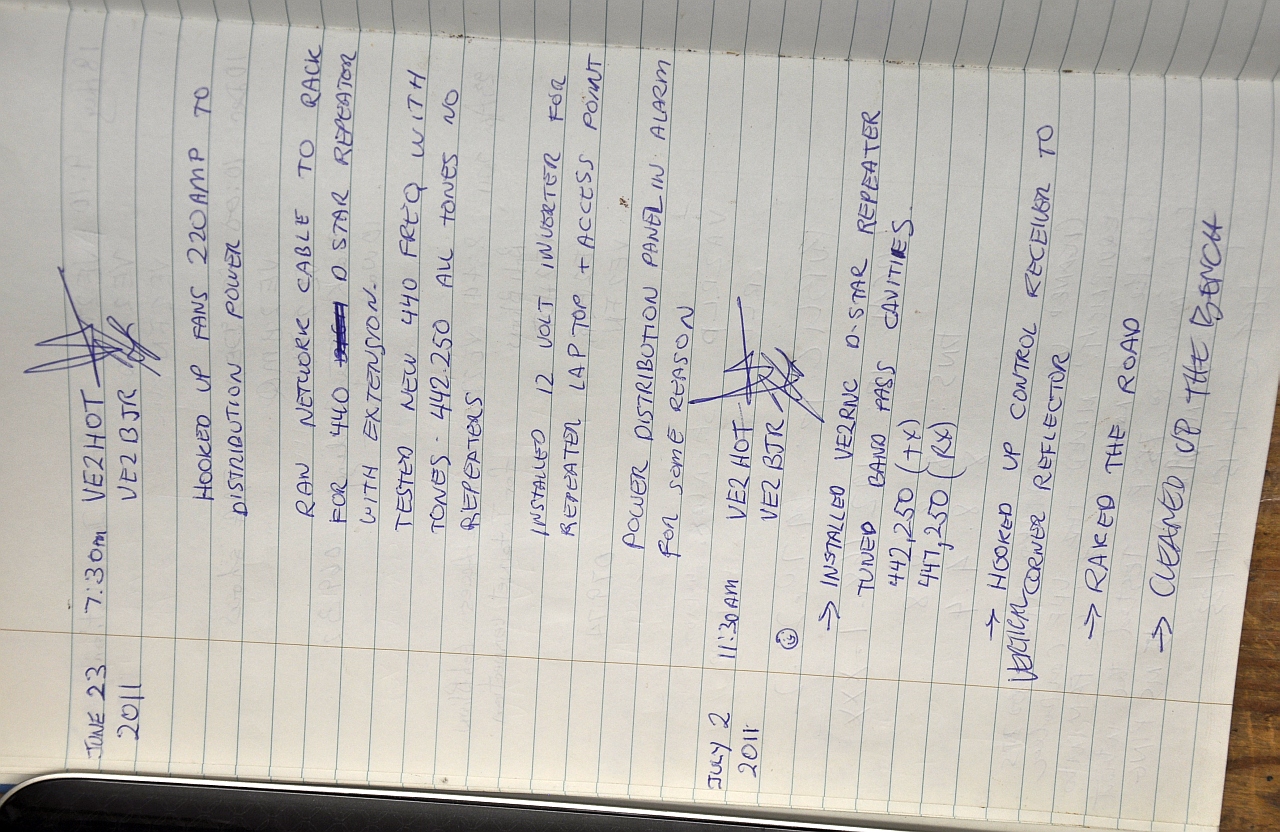 JUNE 23 7:30pm VE2HOT
2011 VE2BJR
HOOKED UP FANS 220AMP TO
DISTRIBUTION POWER
RAN NETWORK CABLE TO RACK
FOR 440 D STAR REPEATOR
WITH EXTENSION.
TESTED NEW 440 FREQ WITH
TONES. 442.250 ALL TONES NO
REPEATERS
INSTALLED 12 VOLT INVERTER FOR
REPEATER LAPTOP + ACCESS POINT
POWER DISTRIBUTION PANEL IN ALARM
FOR SOME REASON
JULY 2 11:30AM VE2HOT
2011 VE2BJR
→ INSTALLED VE2RNC D-STAR REPEATER
TUNED BAND PASS CAVITIES.
442,250 (TX)
447,250 (RX)
→ HOOKED UP CONTROL RECEIVER TO
VERTICAL CORNER REFLECTOR
→ RAKED THE ROAD
→ CLEANED UP THE BENCH